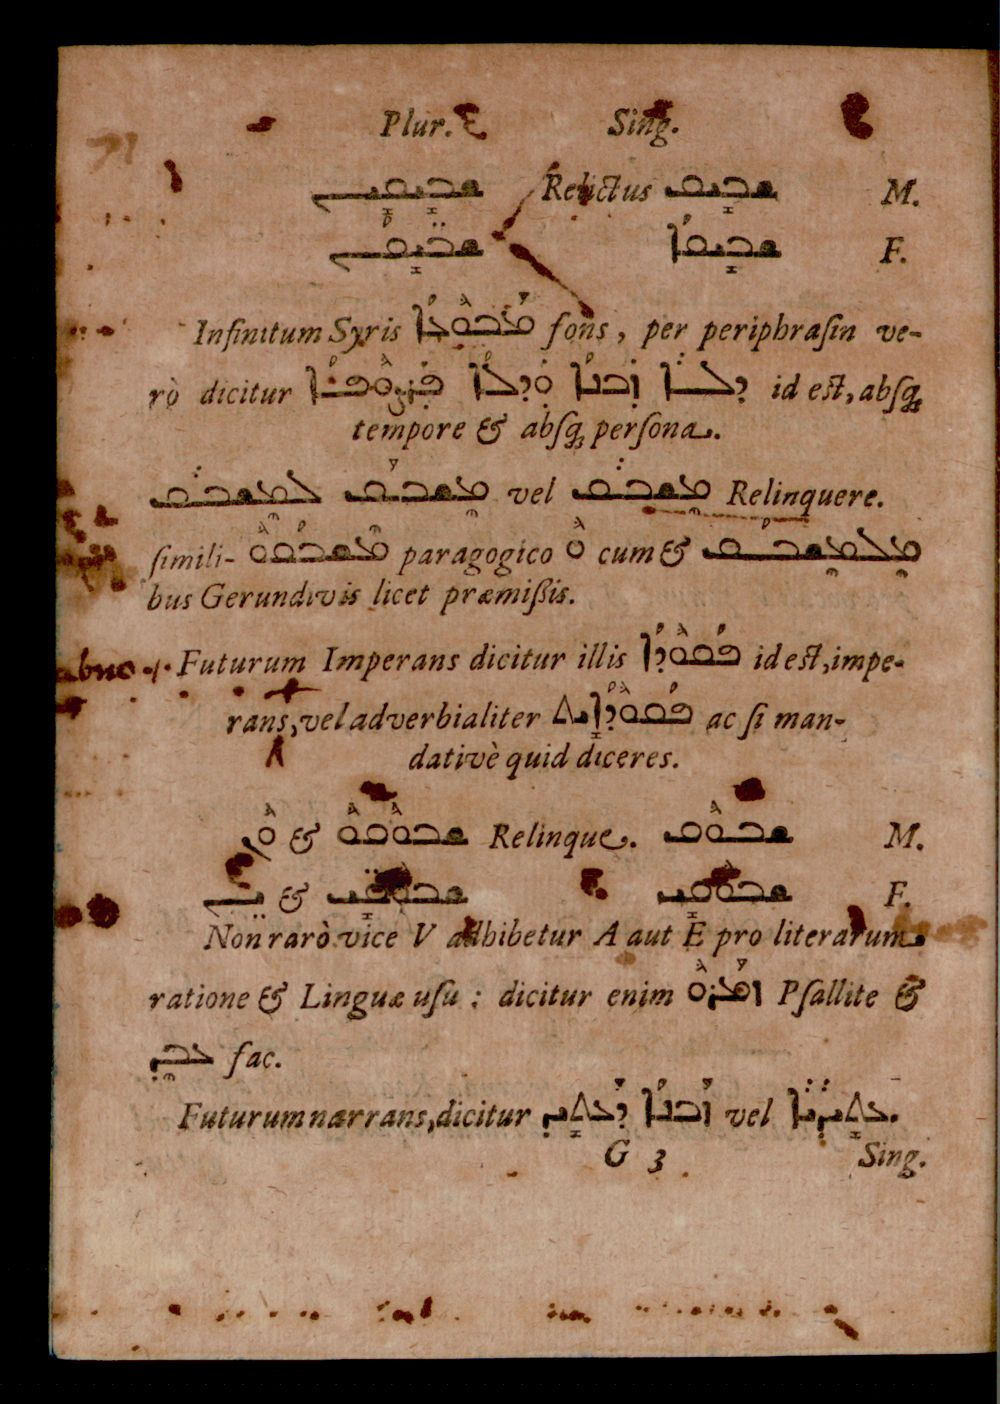 71
Plur. Sing.
ܫܒܝܩܝܢ Relictus ܫܒܝܩ M.
ܫܒܝܩܢ ܫܒܝܩܐ F.
Infinitum Syris ܡܒܘܥܐ fons, per periphraſin ve-
rò dicitur ܕܠܐ ܙܒܢܐ ܘܕܠܐ ܦܪܨܘܦܐ id eſt, abſq;
tempore & abſq; perſona.
ܠܡܫܒܩ ܡܫܒܩ vel ܡܫܒܩ Relinquere.
ſimili- ܡܫܒܩܘ paragogico ܘ cum &
bus Gerundivis licet præmiſsis.
abno Futurum Imperans dicitur illis ܦܩܘܕܐ id eſt, impe-
rans, vel adverbialiter ܦܩܘܕܐܝܬ ac ſi man-
dativè quid diceres.
ܘܢ & ܫܒܘܩܘ Relinque. ܫܒܘܩ M.
ܝܢ & ܫܒܘܩܝ ܫܒܘܩܝ F.
Non rarò vice V adhibetur A aut E pro literarum
ratione & Linguæ uſu : dicitur enim ܙܡܪܘ Pſallite &
ܥܒܕ fac.
Futurum narrans, dicitur ܙܒܢܐ ܕܥܬܝܕ vel ܥܬܝܕܢܐ.
G 3 Sing.